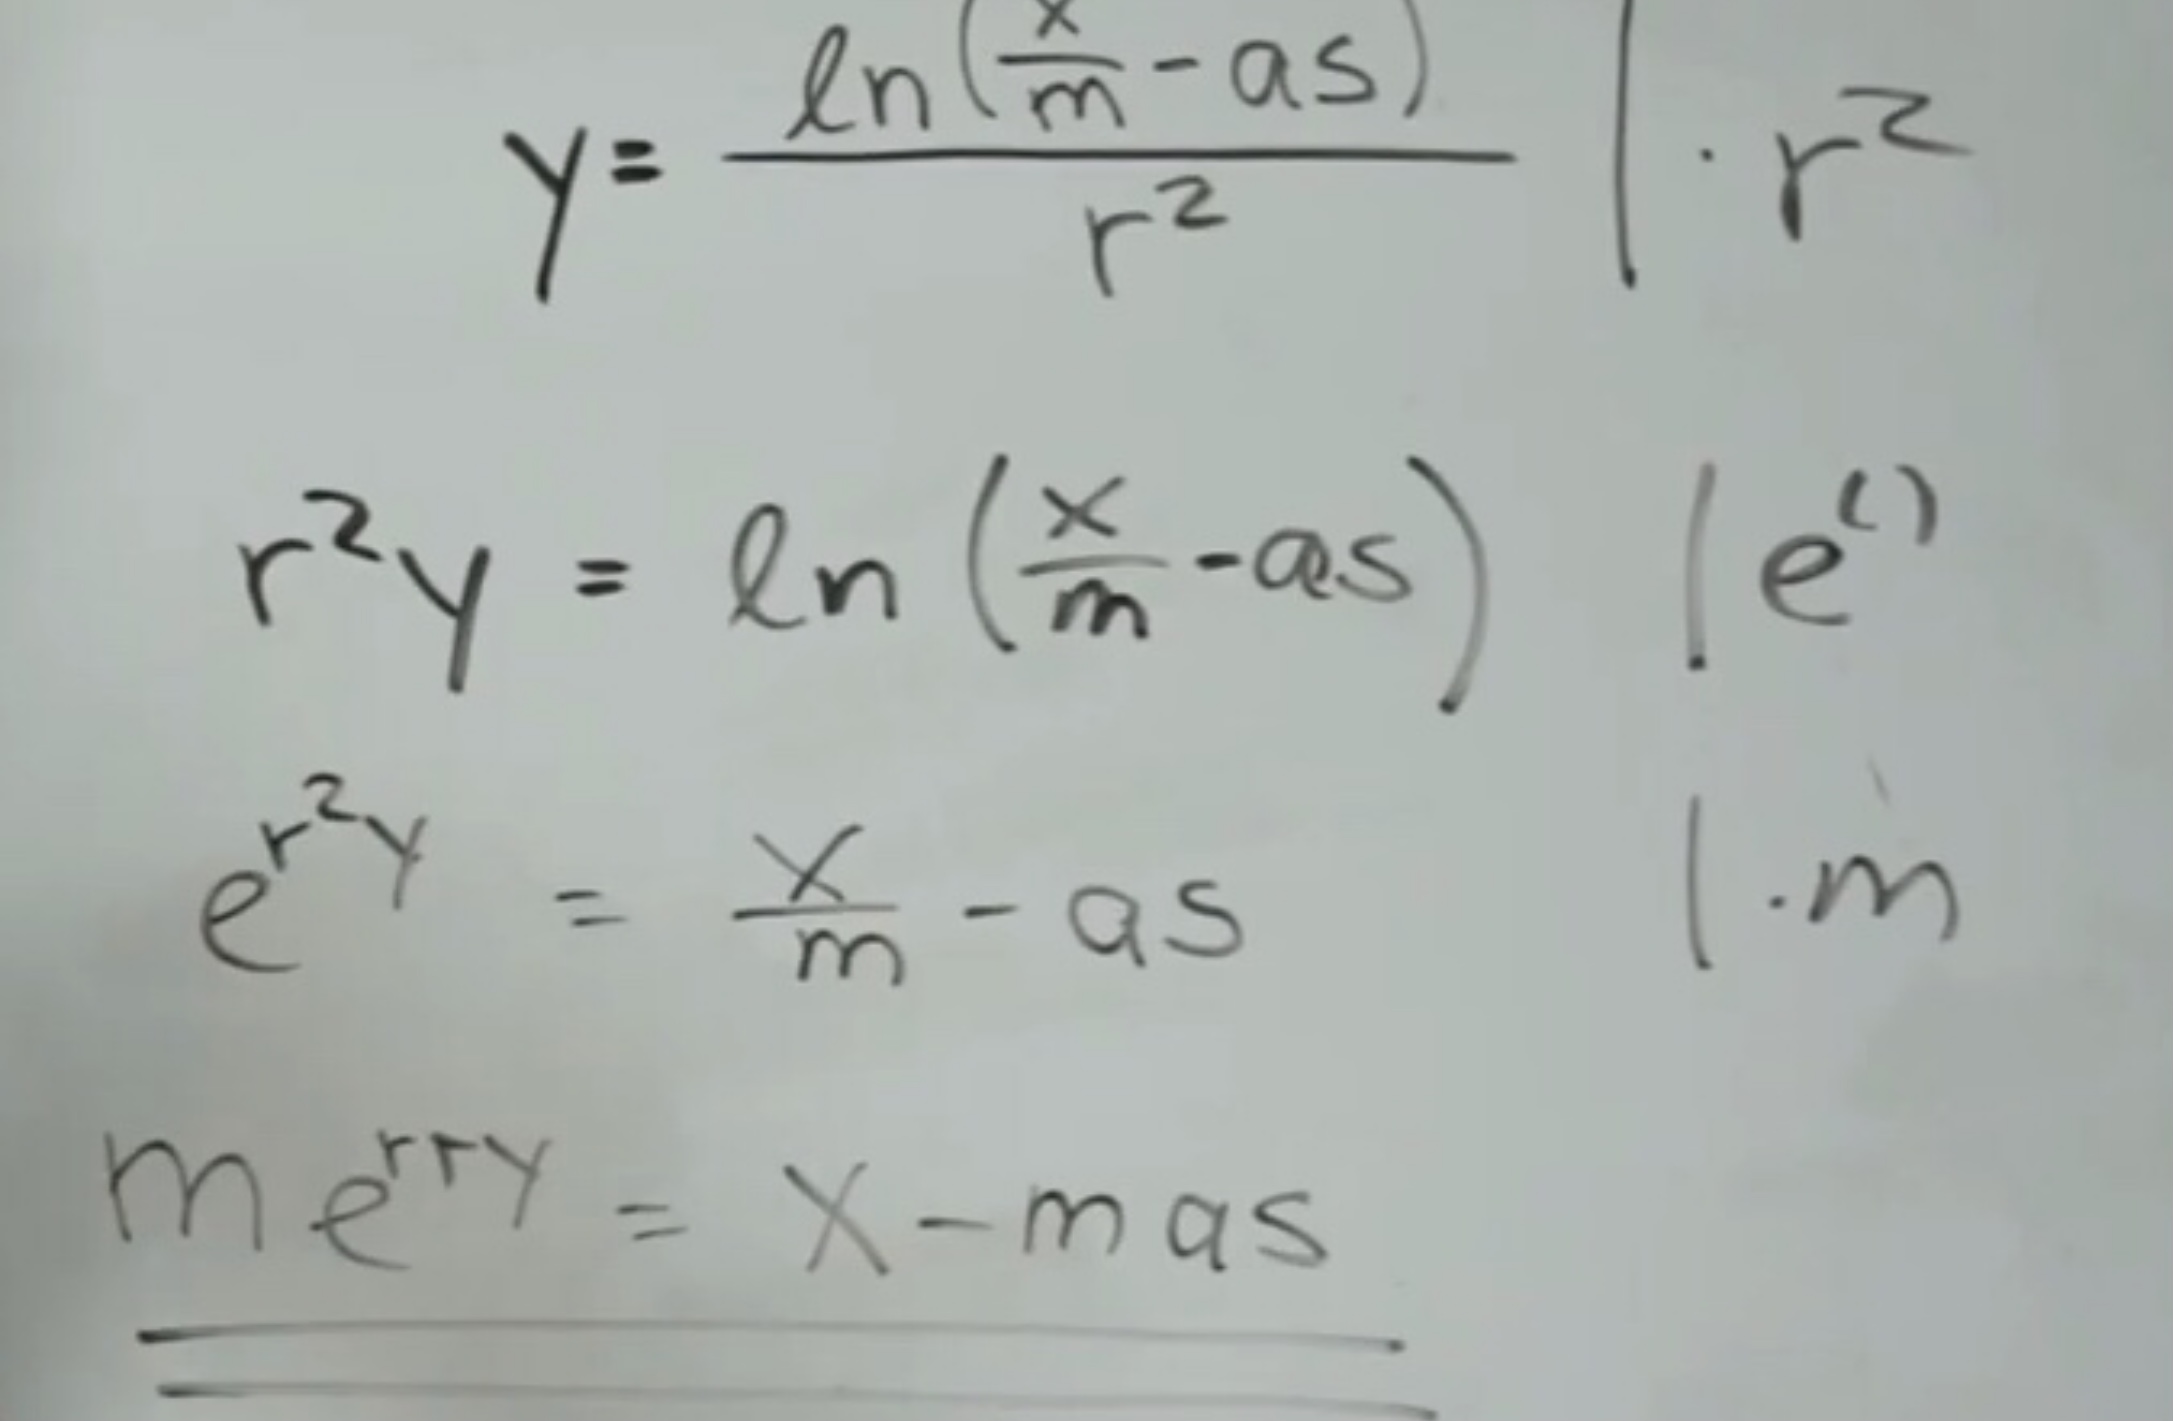 y = ln(x/m - as) / r² | · r²
r²y = ln (x/m - as) | e⁽⁾
e^(r²y) = x/m - as | · m
m e^(rry) = x - m a s